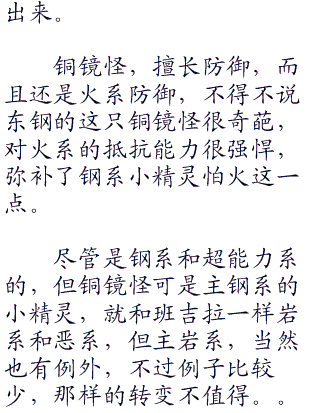 出来。
铜镜怪，擅长防御，而
且还是火系防御，不得不说
东钢的这只铜镜怪很奇葩，
对火系的抵抗能力很强悍，
弥补了钢系小精灵怕火这一
点。
尽管是钢系和超能力系
的，但铜镜怪可是主钢系的
小精灵，就和班吉拉一样岩
系和恶系，但主岩系，当然
也有例外，不过例子比较
少，那样的转变不值得。。